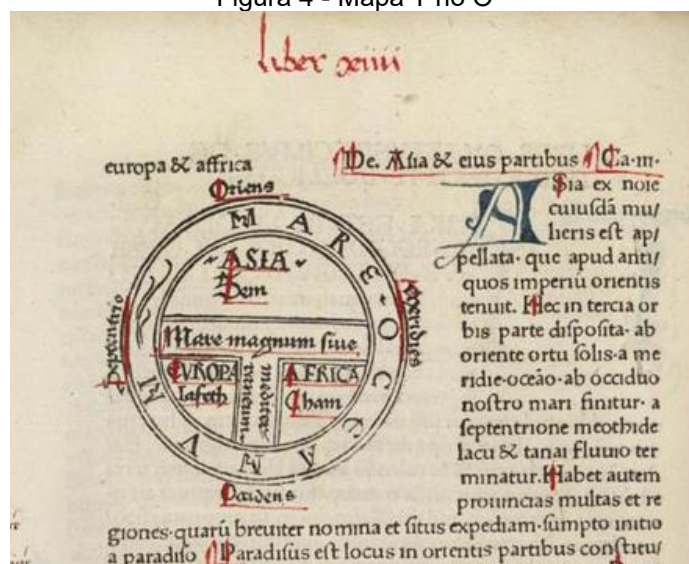 Figura 4 - Mapa T no O
liber xiiii
europa & affrica
Oriens
MARE·OCEANVM
·ASIA·
Sem
Septentrio
Meridies
Mare magnum siue
mediterraneum
EVROPA
Iafeth
AFRICA
Cham
Occidens
De. Asia & eius partibus Ca·III·
ASia ex noīe
cuiusdā mu/
lieris est ap/
pellata· que apud anti/
quos imperiū orientis
tenuit. Hec in tercia or
bis parte disposita· ab
oriente ortu solis·a me
ridie·oceāo·ab occiduo
nostro mari finitur· a
septentrione meothide
lacu & tanai fluuio ter
minatur. Habet autem
prouincias multas et re
giones·quarū breuiter nomina et situs expediam·sumpto initio
a paradiso Paradisus est locus in orientis partibus constitu/